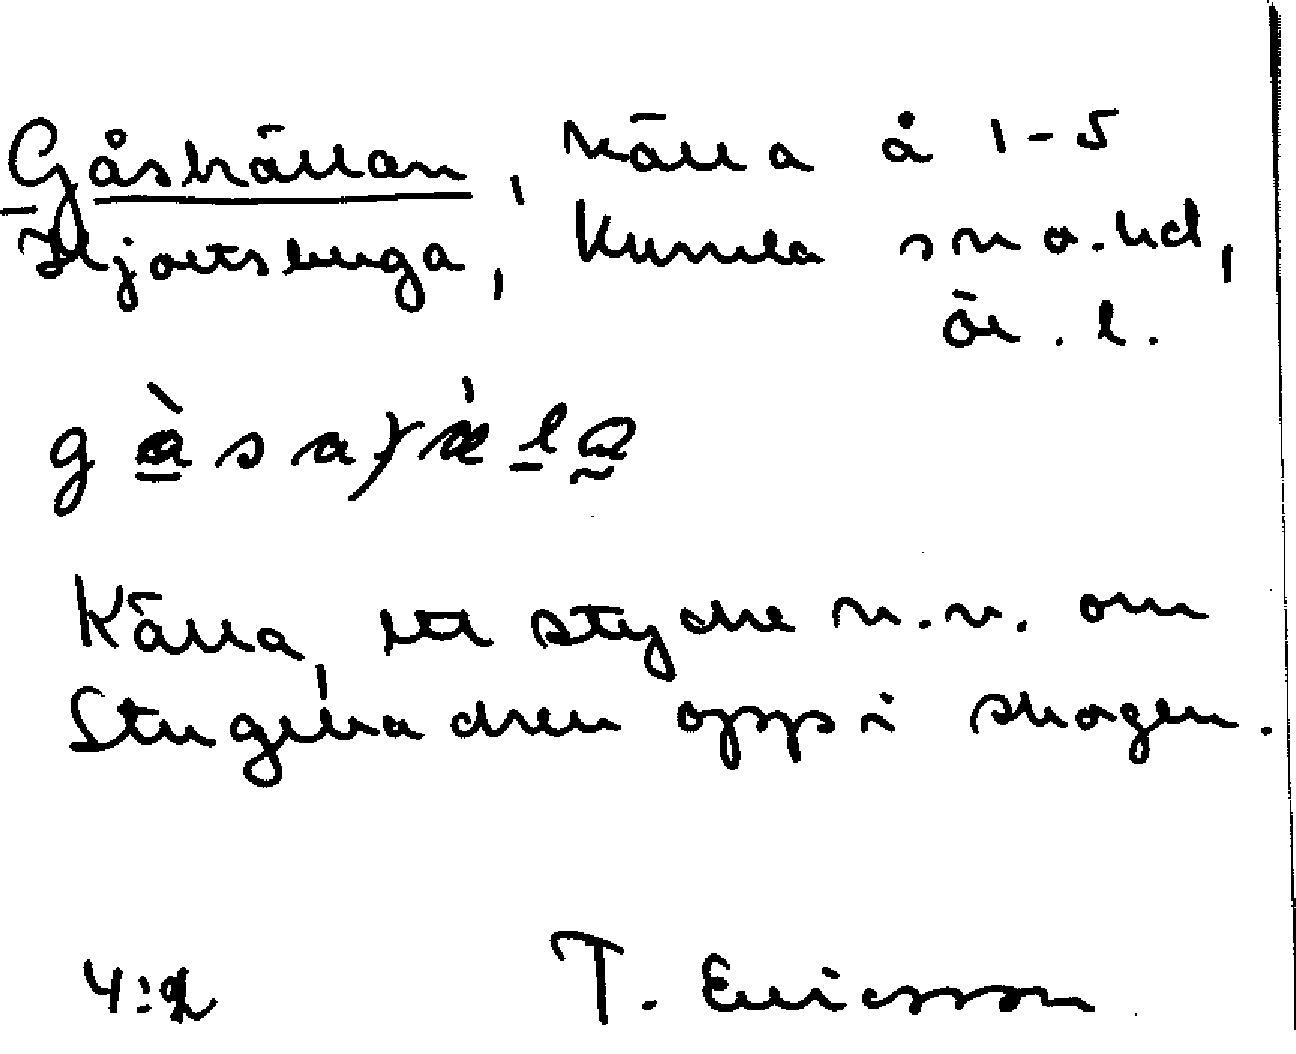 Gåskällan, källa å 1-5
Hjortsberga, Kumla sn o. hd,
Är. l.
Källa, ett stycke n.v. om
Stugebacken opp i skogen.
4:2 T. Ericsson